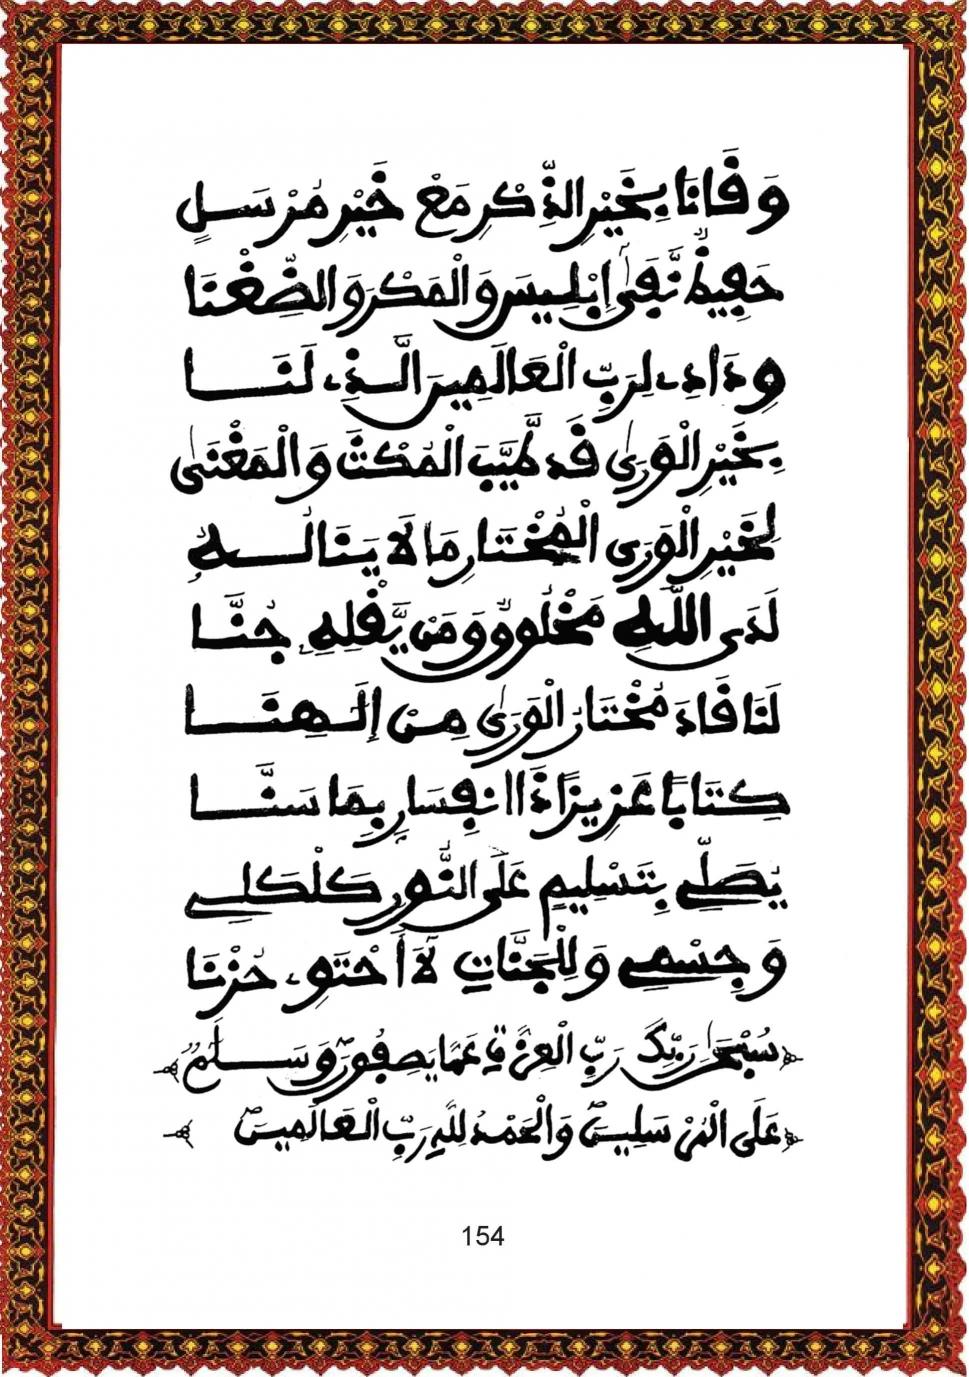 وَفَانَا بِخَيْرِ الذِّكْرِ مَعْ خَيْرِ مُرْسَلٍ
حَفِيظٌ نَّفَى إِبْلِيسَ وَالْمَكْرَ وَالضِّغْنَا
وِدَادِي لِرَبِّ الْعَالَمِينَ الَّذِي لَنَا
بِخَيْرِ الْوَرَى فَدْ طَيَّبَ الْمُكْثَ وَالْمَغْنَى
لِخَيْرِ الْوَرَى الْمُخْتَارِ مَا لَا يَنَالُهُ
لَدَى اللَّهِ مَخْلُوقٌ وَمَن يَّقْلِهِ جُنَّا
لَنَا فَادَ مُخْتَارُ الْوَرَى مِنْ إِلَهِنَا
كِتَابًا عَزِيزًا ذَا انفِسَارٍ بِمَا سَنَّا
يُصَلِّي بِتَسْلِيمٍ عَلَى النُّورِ كَلْكَلِي
وَجِسْمِي وَلِلْجَنَّاتِ لَا أَحْتَوِي حُزْنَا
سُبْحَٰنَ رَبِّكَ رَبِّ الْعِزَّةِ عَمَّا يَصِفُونَ وَسَلَٰمٌ
عَلَى الْمُرْسَلِينَ وَالْحَمْدُ لِلَّهِ رَبِّ الْعَالَمِينَ
154